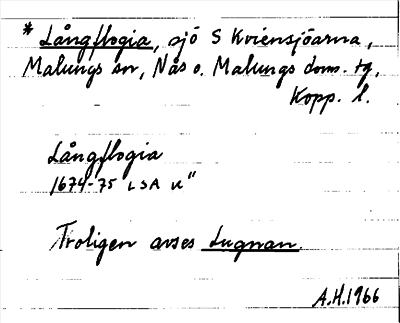 * Långflogia, sjö S Kviensjöarna,
Malungs sn, Nås o. Malungs doms. tg,
Kopp. l.
Långflogia
1674-75 LSA K"
Troligen avses Lugnan.
A.H. 1966